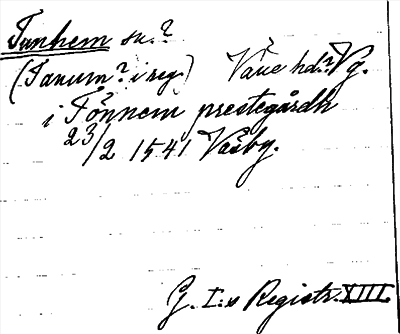 Tunhem sn.?
(Tanum? i reg.) Väne hd.? Vg.
i Tönnem prestegårdh
23/2 1541 Vasby.
G. I:s Registr. XIII.